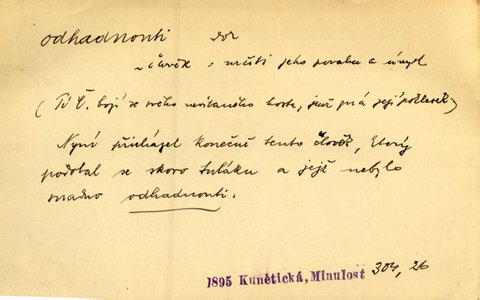 odhadnouti dok
~ člověk, určiti jeho povahu a úmysl
(Tů Č. bojí se svého nočního hosta, jenž zná její poklesek)
Nyní přicházel konečně tento člověk, který
podobal se skoro tuláku a jejž nebylo
snadno odhadnouti.
1895 Kunětická, Minulost 304, 26